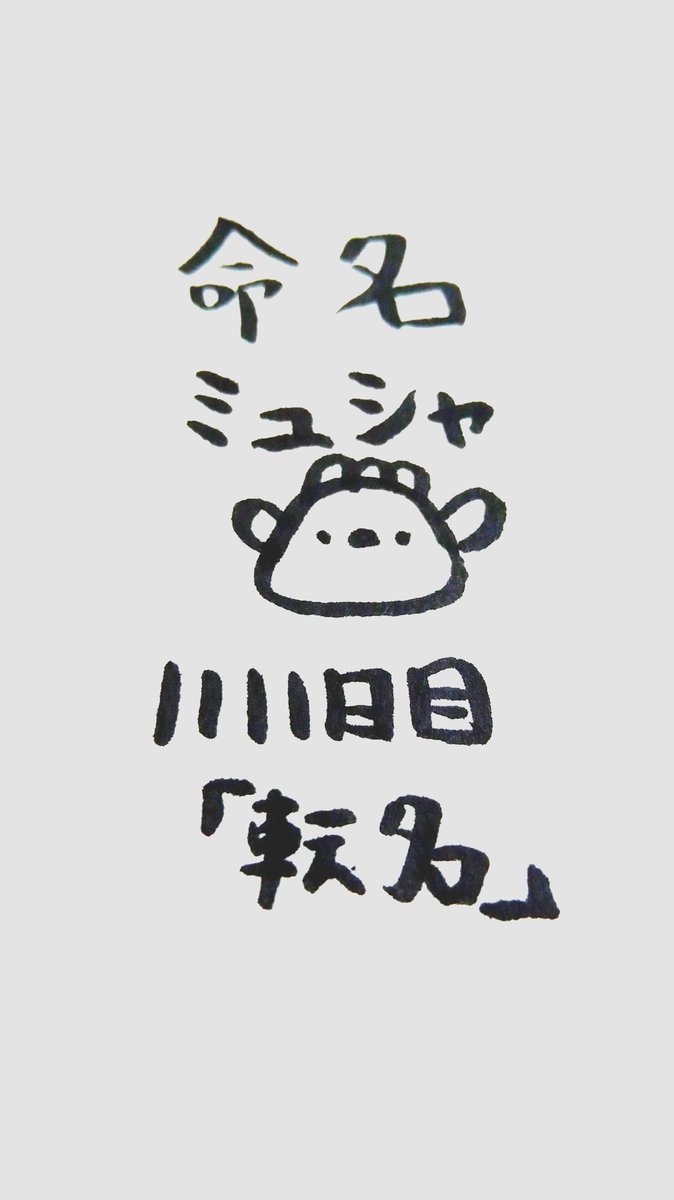 命名
ミュシャ
1111日目
「転名」